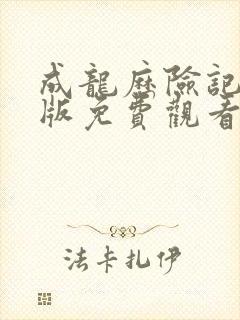 成龍歷險記
版免費觀看
法卡扎伊